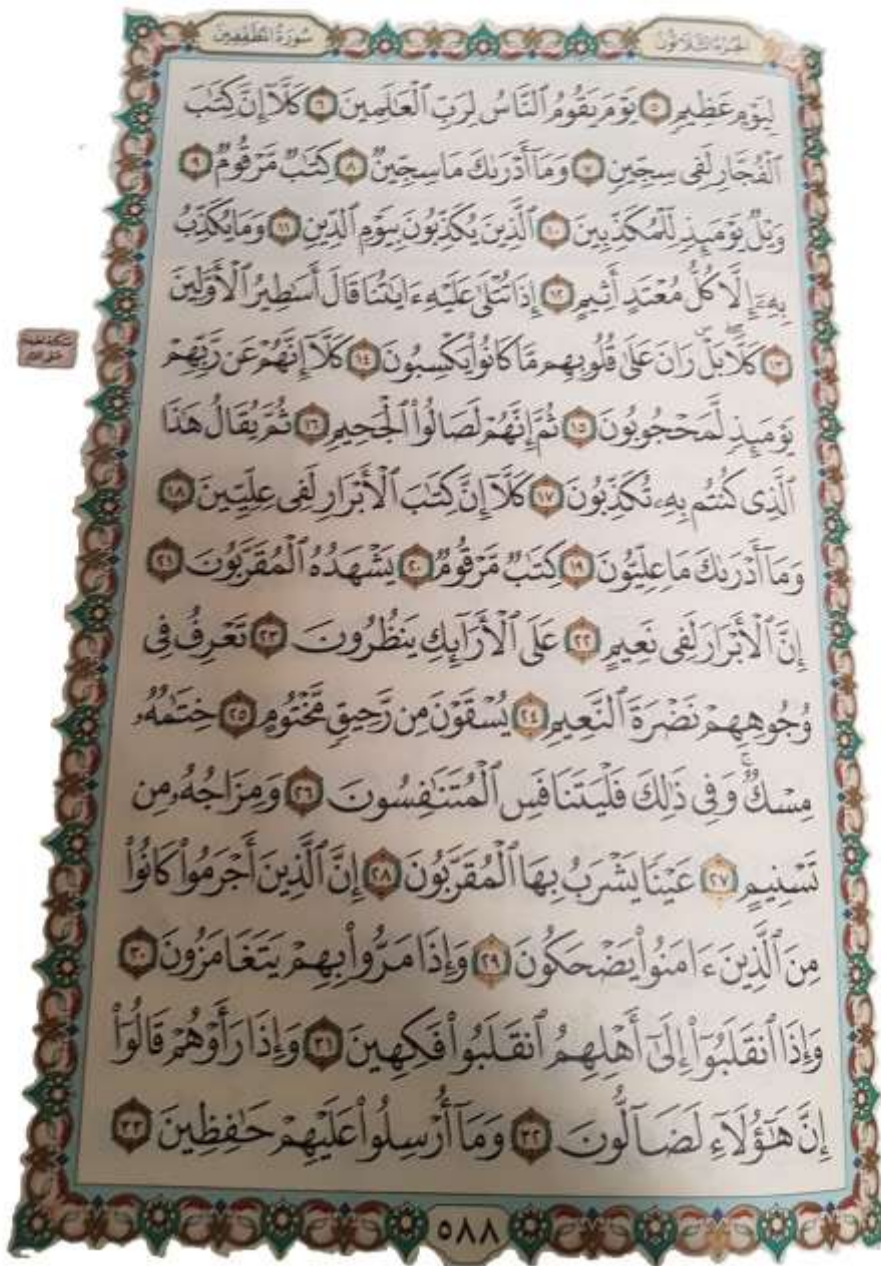 سُورَةُ المُطَفِّفِينَ
الجُزْءُ الثَّلَاثُونَ
لِيَوْمٍ عَظِيمٍ ٥ يَوْمَ يَقُومُ ٱلنَّاسُ لِرَبِّ ٱلْعَـٰلَمِينَ ٦ كَلَّآ إِنَّ كِتَـٰبَ
ٱلْفُجَّارِ لَفِى سِجِّينٍ ٧ وَمَآ أَدْرَىٰكَ مَا سِجِّينٌ ٨ كِتَـٰبٌ مَّرْقُومٌ ٩
وَيْلٌ يَوْمَئِذٍ لِّلْمُكَذِّبِينَ ١٠ ٱلَّذِينَ يُكَذِّبُونَ بِيَوْمِ ٱلدِّينِ ١١ وَمَا يُكَذِّبُ
بِهِۦٓ إِلَّا كُلُّ مُعْتَدٍ أَثِيمٍ ١٢ إِذَا تُتْلَىٰ عَلَيْهِ ءَايَـٰتُنَا قَالَ أَسَـٰطِيرُ ٱلْأَوَّلِينَ
١٣ كَلَّا ۖ بَلْ ۜ رَانَ عَلَىٰ قُلُوبِهِم مَّا كَانُوا۟ يَكْسِبُونَ ١٤ كَلَّآ إِنَّهُمْ عَن رَّبِّهِمْ
يَوْمَئِذٍ لَّمَحْجُوبُونَ ١٥ ثُمَّ إِنَّهُمْ لَصَالُوا۟ ٱلْجَحِيمِ ١٦ ثُمَّ يُقَالُ هَـٰذَا
ٱلَّذِى كُنتُم بِهِۦ تُكَذِّبُونَ ١٧ كَلَّآ إِنَّ كِتَـٰبَ ٱلْأَبْرَارِ لَفِى عِلِّيِّينَ ١٨
وَمَآ أَدْرَىٰكَ مَا عِلِّيُّونَ ١٩ كِتَـٰبٌ مَّرْقُومٌ ٢٠ يَشْهَدُهُ ٱلْمُقَرَّبُونَ ٢١
إِنَّ ٱلْأَبْرَارَ لَفِى نَعِيمٍ ٢٢ عَلَى ٱلْأَرَآئِكِ يَنظُرُونَ ٢٣ تَعْرِفُ فِى
وُجُوهِهِمْ نَضْرَةَ ٱلنَّعِيمِ ٢٤ يُسْقَوْنَ مِن رَّحِيقٍ مَّخْتُومٍ ٢٥ خِتَـٰمُهُۥ
مِسْكٌ ۚ وَفِى ذَٰلِكَ فَلْيَتَنَافَسِ ٱلْمُتَنَـٰفِسُونَ ٢٦ وَمِزَاجُهُۥ مِن
تَسْنِيمٍ ٢٧ عَيْنًا يَشْرَبُ بِهَا ٱلْمُقَرَّبُونَ ٢٨ إِنَّ ٱلَّذِينَ أَجْرَمُوا۟ كَانُوا۟
مِنَ ٱلَّذِينَ ءَامَنُوا۟ يَضْحَكُونَ ٢٩ وَإِذَا مَرُّوا۟ بِهِمْ يَتَغَامَزُونَ ٣٠
وَإِذَا ٱنقَلَبُوٓا۟ إِلَىٰٓ أَهْلِهِمُ ٱنقَلَبُوا۟ فَكِهِينَ ٣١ وَإِذَا رَأَوْهُمْ قَالُوٓا۟
إِنَّ هَـٰٓؤُلَآءِ لَضَآلُّونَ ٣٢ وَمَآ أُرْسِلُوا۟ عَلَيْهِمْ حَـٰفِظِينَ ٣٣
٥٨٨